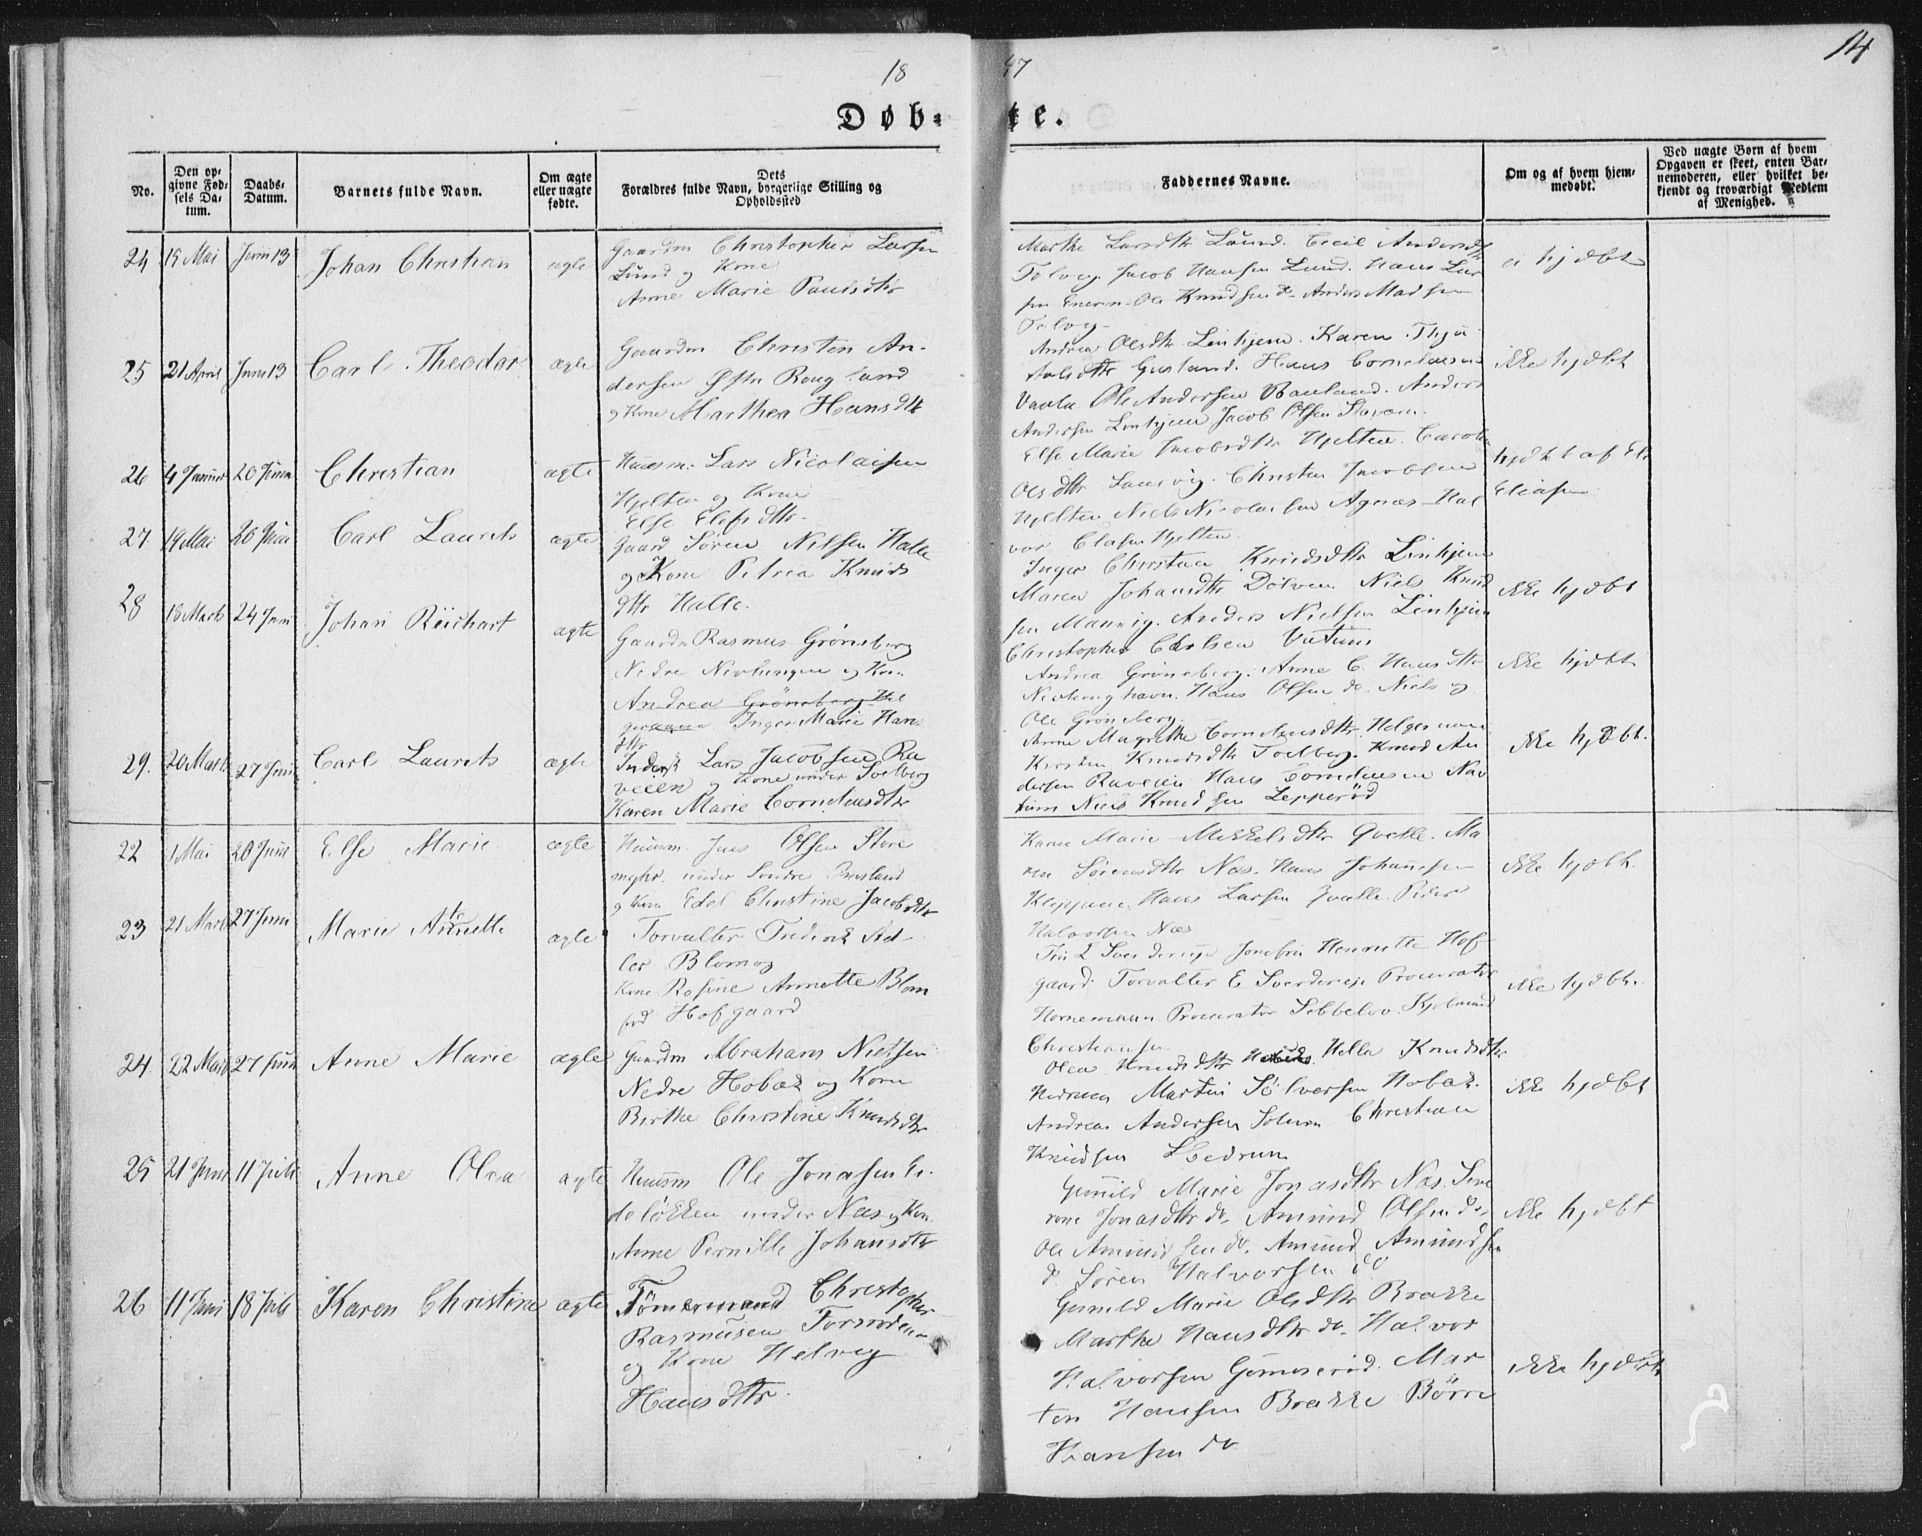 18
47
14
Døb-
te.
No.
Den op-
givne Fød-
sels Da-
tum.
Daabs-
Datum.
Barnets fulde Navn.
Om ægte
eller uægte
fødte.
Dets
Forældres fulde Navn, borgerlige Stilling og
Opholdssted
Faddernes Navne.
Om og af hvem hjem-
medøbt.
Ved uægte Børn af hvem
Opgaven er skeet, enten Bar-
nemoderen, eller hvilket be-
kjendt og troværdigt Medlem
af Menighed.
24 15 Mai Juni 13 Johan Christian ægte
Gaardm Christopher Larsen
Lund og Kone
Anne Marie Paulsdtr
Marthe Larsdtr Lund. Cecil Andersdtr
Tolvey. Jacob Hansen Lund. Hans Lar
sen Ole Knudsen do Anders Madsen
Tolvey
hjdbt
25 21 April Juni 13 Carl Theodor ægte
Gaardm Christen An-
dersen Østre Rougland
og Kone Marthea Hansdtr
Andrea Olsdtr Linhjem. Karen
Gusland. Hans Cornelius
Ole Andersen Bauland. Anders
Andersen Linhjem Jacob Olsen Stavern
ikke hjdbt
26 4 Januar 20 Juni Christian ægte
Huusm. Lars Nicolaisen
Hjelten og Kone
Else Elefsdtr
Else Marie Jacobsdtr Hjelten. Carol
Olsdtr Laurvig. Christen Jacobsen
Hjelten Niels Nicolaisen Agnæs Hal
vor Olafsen Hjelten
hjdbt af
Eliasen
27 19 Mai 26 Juni Carl Laurits ægte
Gaard Søren Nilsen Halle
og Kone Petrea Knuds
dtr Halle.
Inger Christine Knudsdtr Linhjem
Maren Johansdtr Dolven Niels Knud
sen Manvig. Anders Nielsen Linhjem
Christopher Carlsen
ikke hjdbt
28 18 Marts 24 Juni Johan Reichart ægte
Gaardm Rasmus Grønsberg
Nedre Nevlungen og Kone
Andrea Grønsberg
Inger Marie Han
dtr
Andrea Grønsberg. Anne C. Hansdtr
Nevlunghavn. Hans Olsen do. Niels og
Ole Grønsberg
ikke hjdbt
29. 20 Marts 27 Juni Carl Laurits ægte
Inderst Lars Jacobsen Ra
veien og Kone under Toelberg
Karen Marie Corneliusdtr
Anne Magrethe Corneliusdtr Helgeroaen
Kirsten Knudsdtr Toelberg. Knud An
dersen Raveien Hans Corneliusen Nav
Niels Knudsen Lepperød
ikke hjdbt.
22 1 Mai 20 Juni Else Marie ægte
Huusm. Jens Olsen Store
myhr. under Søndre Brusland
og Kone Edel Christine Jacobsdtr
Karen Marie Mikkelsdtr Qvelle. Ma
ren Sørensdtr Næs. Hans Johannesen
Kleppane Hans Larsen Qvelle. Peder
Halvorsen Næs
ikke hjdbt.
23 21 Marts 27 Juni Marie Annette ægte
Forvalter Frederik Ad-
ler Blom og
Kone Rosine Annette Blom
fød Hofgaard
Fru L Sverderup Jomfru Henriette Hof
gaard Forvalter E Sverderup Procurator
Hornemann Procurator Kjøbmand
Christiansen
ikke hjdbt.
24. 22 Marts 27 Juni Anne Marie ægte
Gaardm Abraham Nielsen
Nedre Hobæk og Kone
Birthe Christine Knudsdtr
Olea Knudsdtr Helle Knudsdtr
Martin Sølversen Hobæk.
Andreas Andersen Solum Christian
Knudsen
ikke hjdbt
25 21 Juni 11 Juli Anne Olea ægte
Huusm Ole Jonasen
løkken under Næs og Kone
Anne Pernille Johansdtr
Gunild Marie Jonasdtr Næs. Seve
rine Jonasdtr do. Amund Olsen do.
Ole Amundsen do. Amund Amundsen
d. Søren Halvorsen do
ikke hjdbt
26 11 Juni 18 Juli Karen Christine ægte
Tømermand Christopher
Rasmusen
og Kone Helvey
Hansdtr.
Gunild Marie Olsdtr Brække
Marthe Hansdtr do. Halvor
Halvorsen Gumserød. Mar
ten Hansen Brække Børre
Hansen do
ikke hjdbt